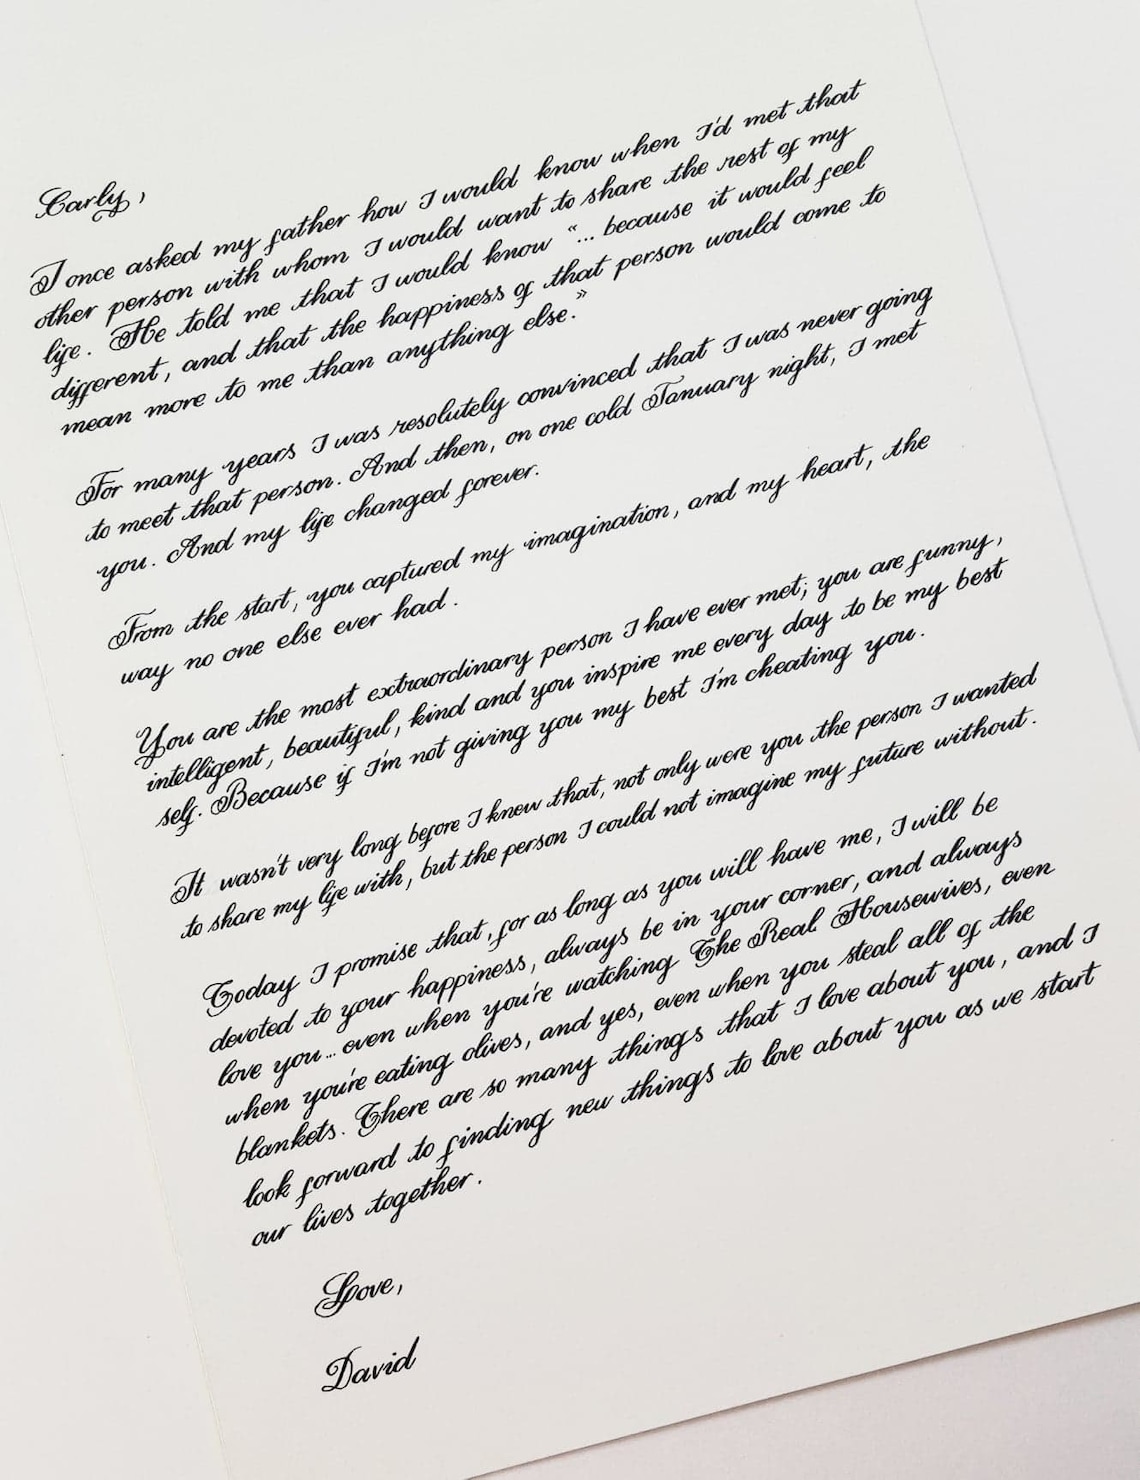 Carly,
I once asked my father how I would know when I'd met that
other person with whom I would want to share the rest of my
life. He told me that I would know "... because it would feel
different, and that the happiness of that person would come to
mean more to me than anything else."
For many years I was resolutely convinced that I was never going
to meet that person. And then, on one cold January night, I met
you. And my life changed forever.
From the start, you captured my imagination, and my heart, the
way no one else ever had.
You are the most extraordinary person I have ever met; you are funny,
intelligent, beautiful, kind and you inspire me every day to be my best
self. Because if I'm not giving you my best I'm cheating you.
It wasn't very long before I knew that, not only were you the person I wanted
to share my life with, but the person I could not imagine my future without.
Today I promise that, for as long as you will have me, I will be
devoted to your happiness, always be in your corner, and always
love you... even when you're watching The Real Housewives, even
when you're eating olives, and yes, even when you steal all of the
blankets. There are so many things that I love about you, and I
look forward to finding new things to love about you as we start
our lives together.
Love,
David